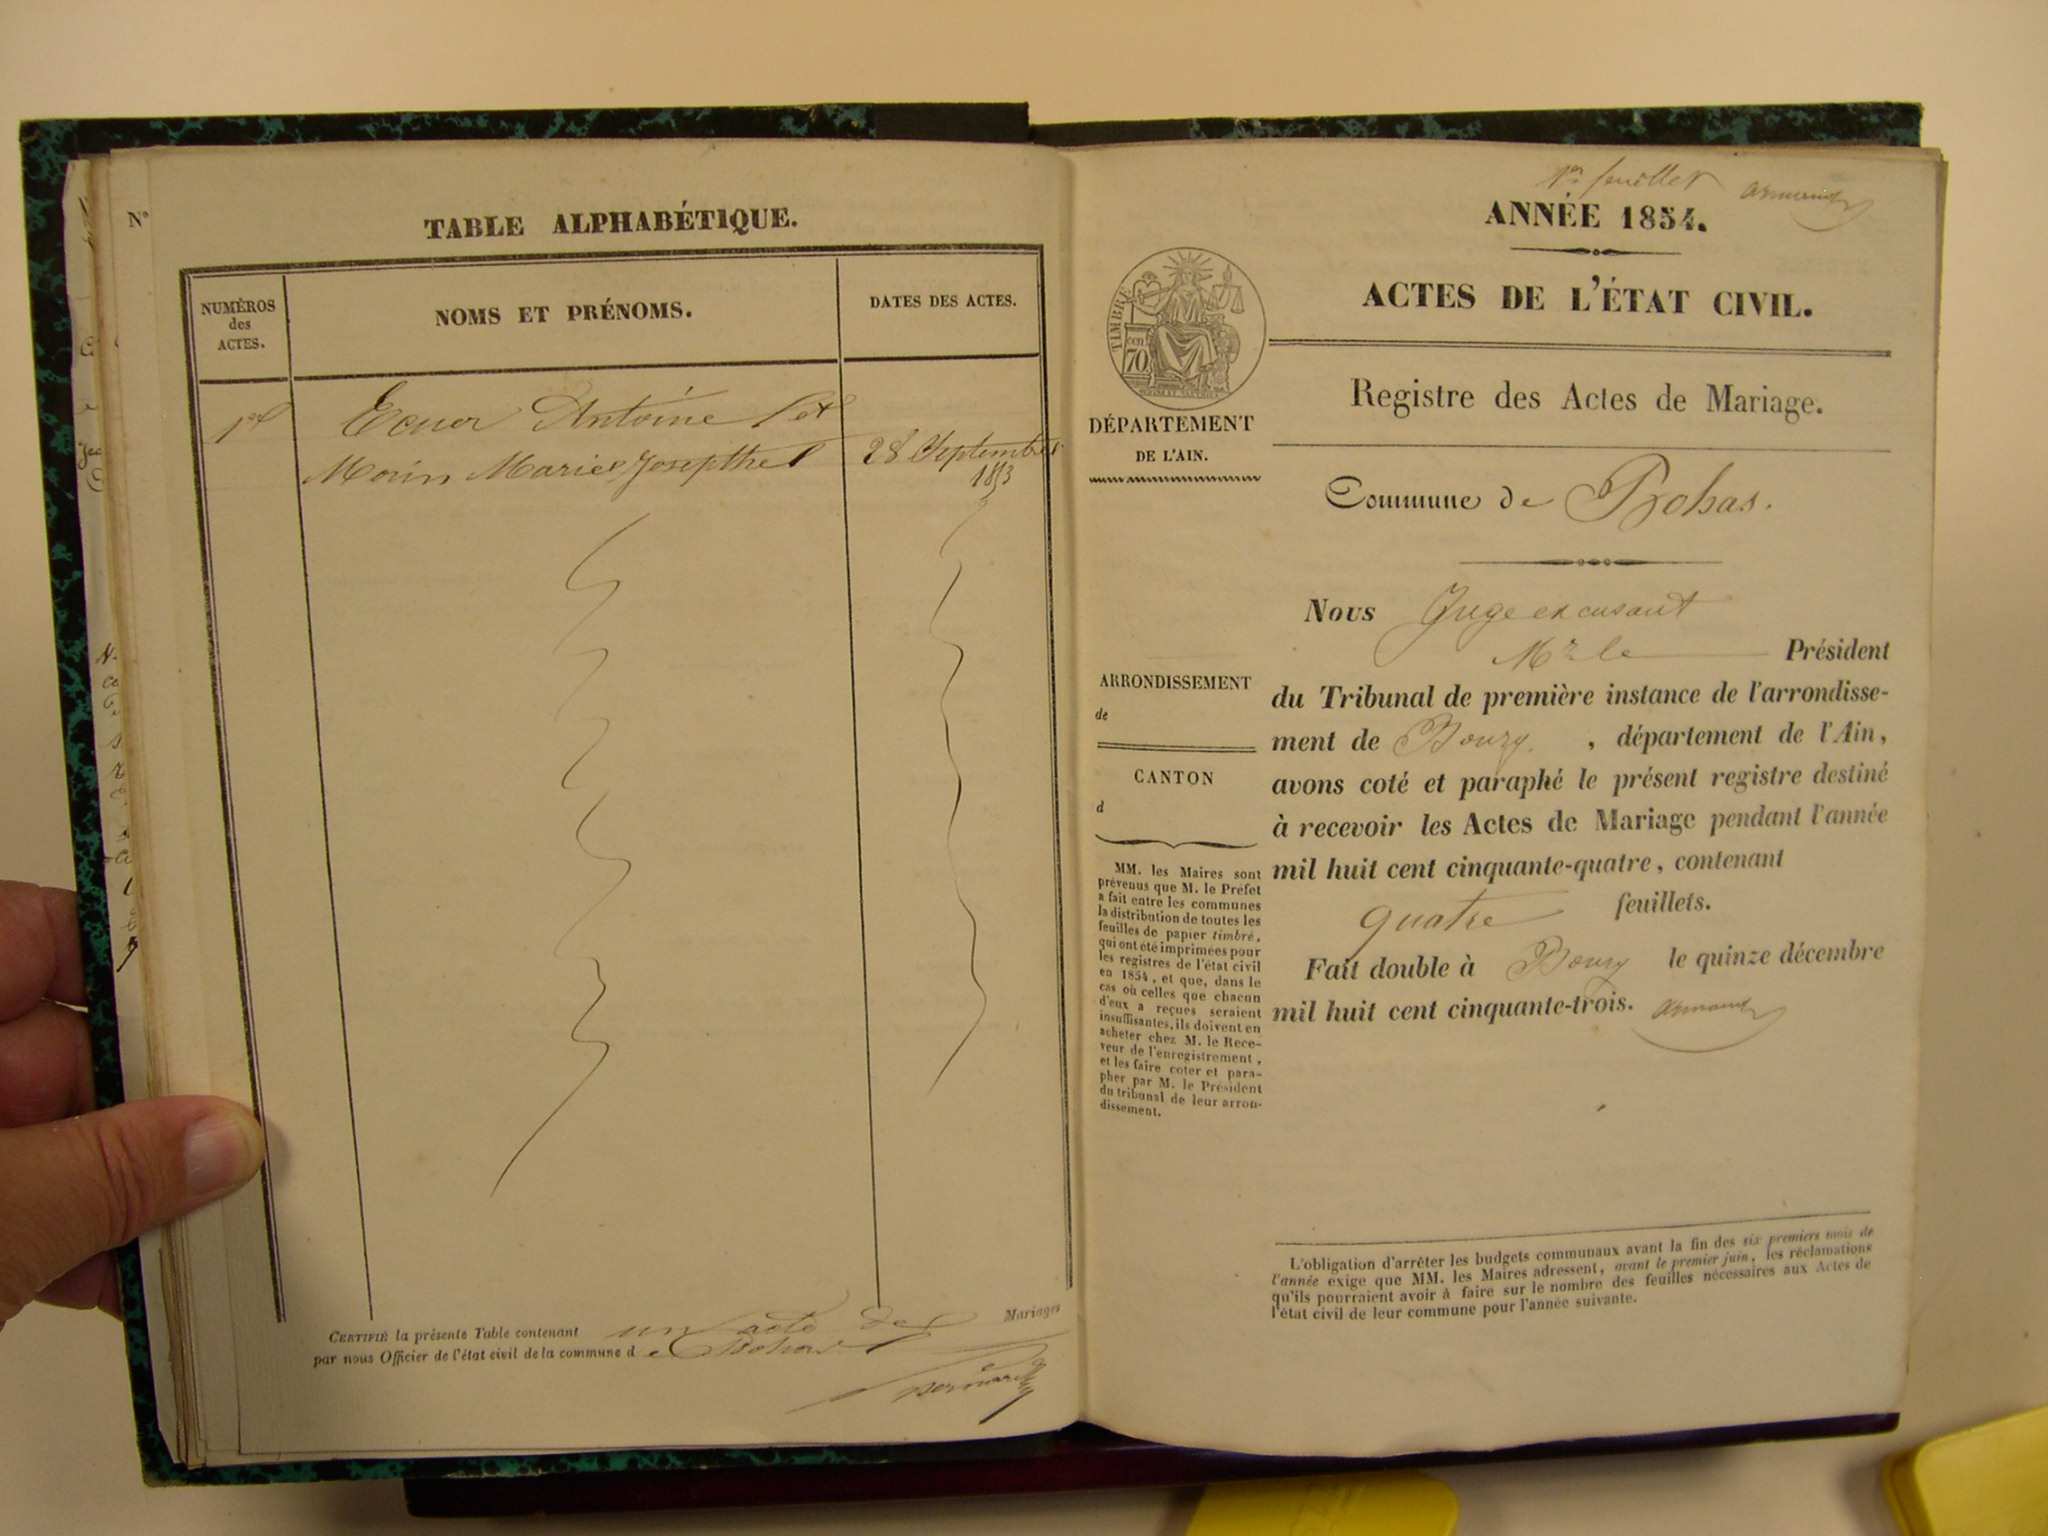 N°
TABLE ALPHABÉTIQUE.
NUMÉROS
des
ACTES.
NOMS ET PRÉNOMS.
DATES DES ACTES.
1er
Ecuer Antoine et
Morin Marie Josepthe
28 Septembre
1853
CERTIFIÉ la présente Table contenant un acte de Mariages
par nous Officier de l'état civil de la commune de Bohas
1er feuillet
ANNÉE 1854.
ACTES DE L'ÉTAT CIVIL.
TIMBRE
cen
70
Registre des Actes de Mariage.
DÉPARTEMENT
DE L'AIN.
Commune de Bohas.
ARRONDISSEMENT
de
CANTON
d
MM. les Maires sont
prévenus que M. le Préfet
a fait entre les communes
la distribution de toutes les
feuilles de papier timbré,
qui ont été imprimées pour
les registres de l'état civil
en 1854, et que, dans le
cas où celles que chacun
d'eux a reçues seraient
insuffisantes, ils doivent en
acheter chez M. le Rece-
veur de l'enregistrement,
et les faire coter et para-
pher par M. le Président
du tribunal de leur arron-
dissement.
Nous Juge excusant
Mr le Président
du Tribunal de première instance de l'arrondisse-
ment de Bourg, département de l'Ain,
avons coté et paraphé le présent registre destiné
à recevoir les Actes de Mariage pendant l'année
mil huit cent cinquante-quatre, contenant
quatre feuillets.
Fait double à Bourg le quinze décembre
mil huit cent cinquante-trois.
L'obligation d'arrêter les budgets communaux avant la fin des six premiers mois de
l'année exige que MM. les Maires adressent, avant le premier juin, les réclamations
qu'ils pourraient avoir à faire sur le nombre des feuilles nécessaires aux Actes de
l'état civil de leur commune pour l'année suivante.